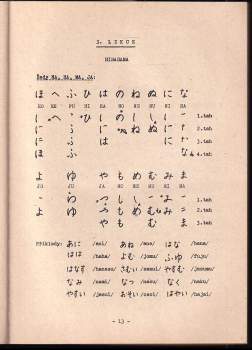 2. LEKCE
HIRAGANA
Řady HA, NA, MA, JA:
ほ へ ふ ひ は の ね ぬ に な
HO HE FU HI HA NO NE NU NI NA
1.tah
2.tah
3.tah
4.tah
よ ゆ や も め む み ま
JO JU JA MO ME MU MI MA
1.tah
2.tah
3.tah
Příklady: あに /ani/ あね /ane/ はな /hana/
はは /haha/ よむ /jomu/ ふゆ /fuju/
はなす /hanasu/ さむい /samui/ やすむ /jasumu/
なみ /nami/ なつ /nacu/ なく /naku/
やすい /jasui/ おそい /osoi/ はやい /hajai/
- 13 -